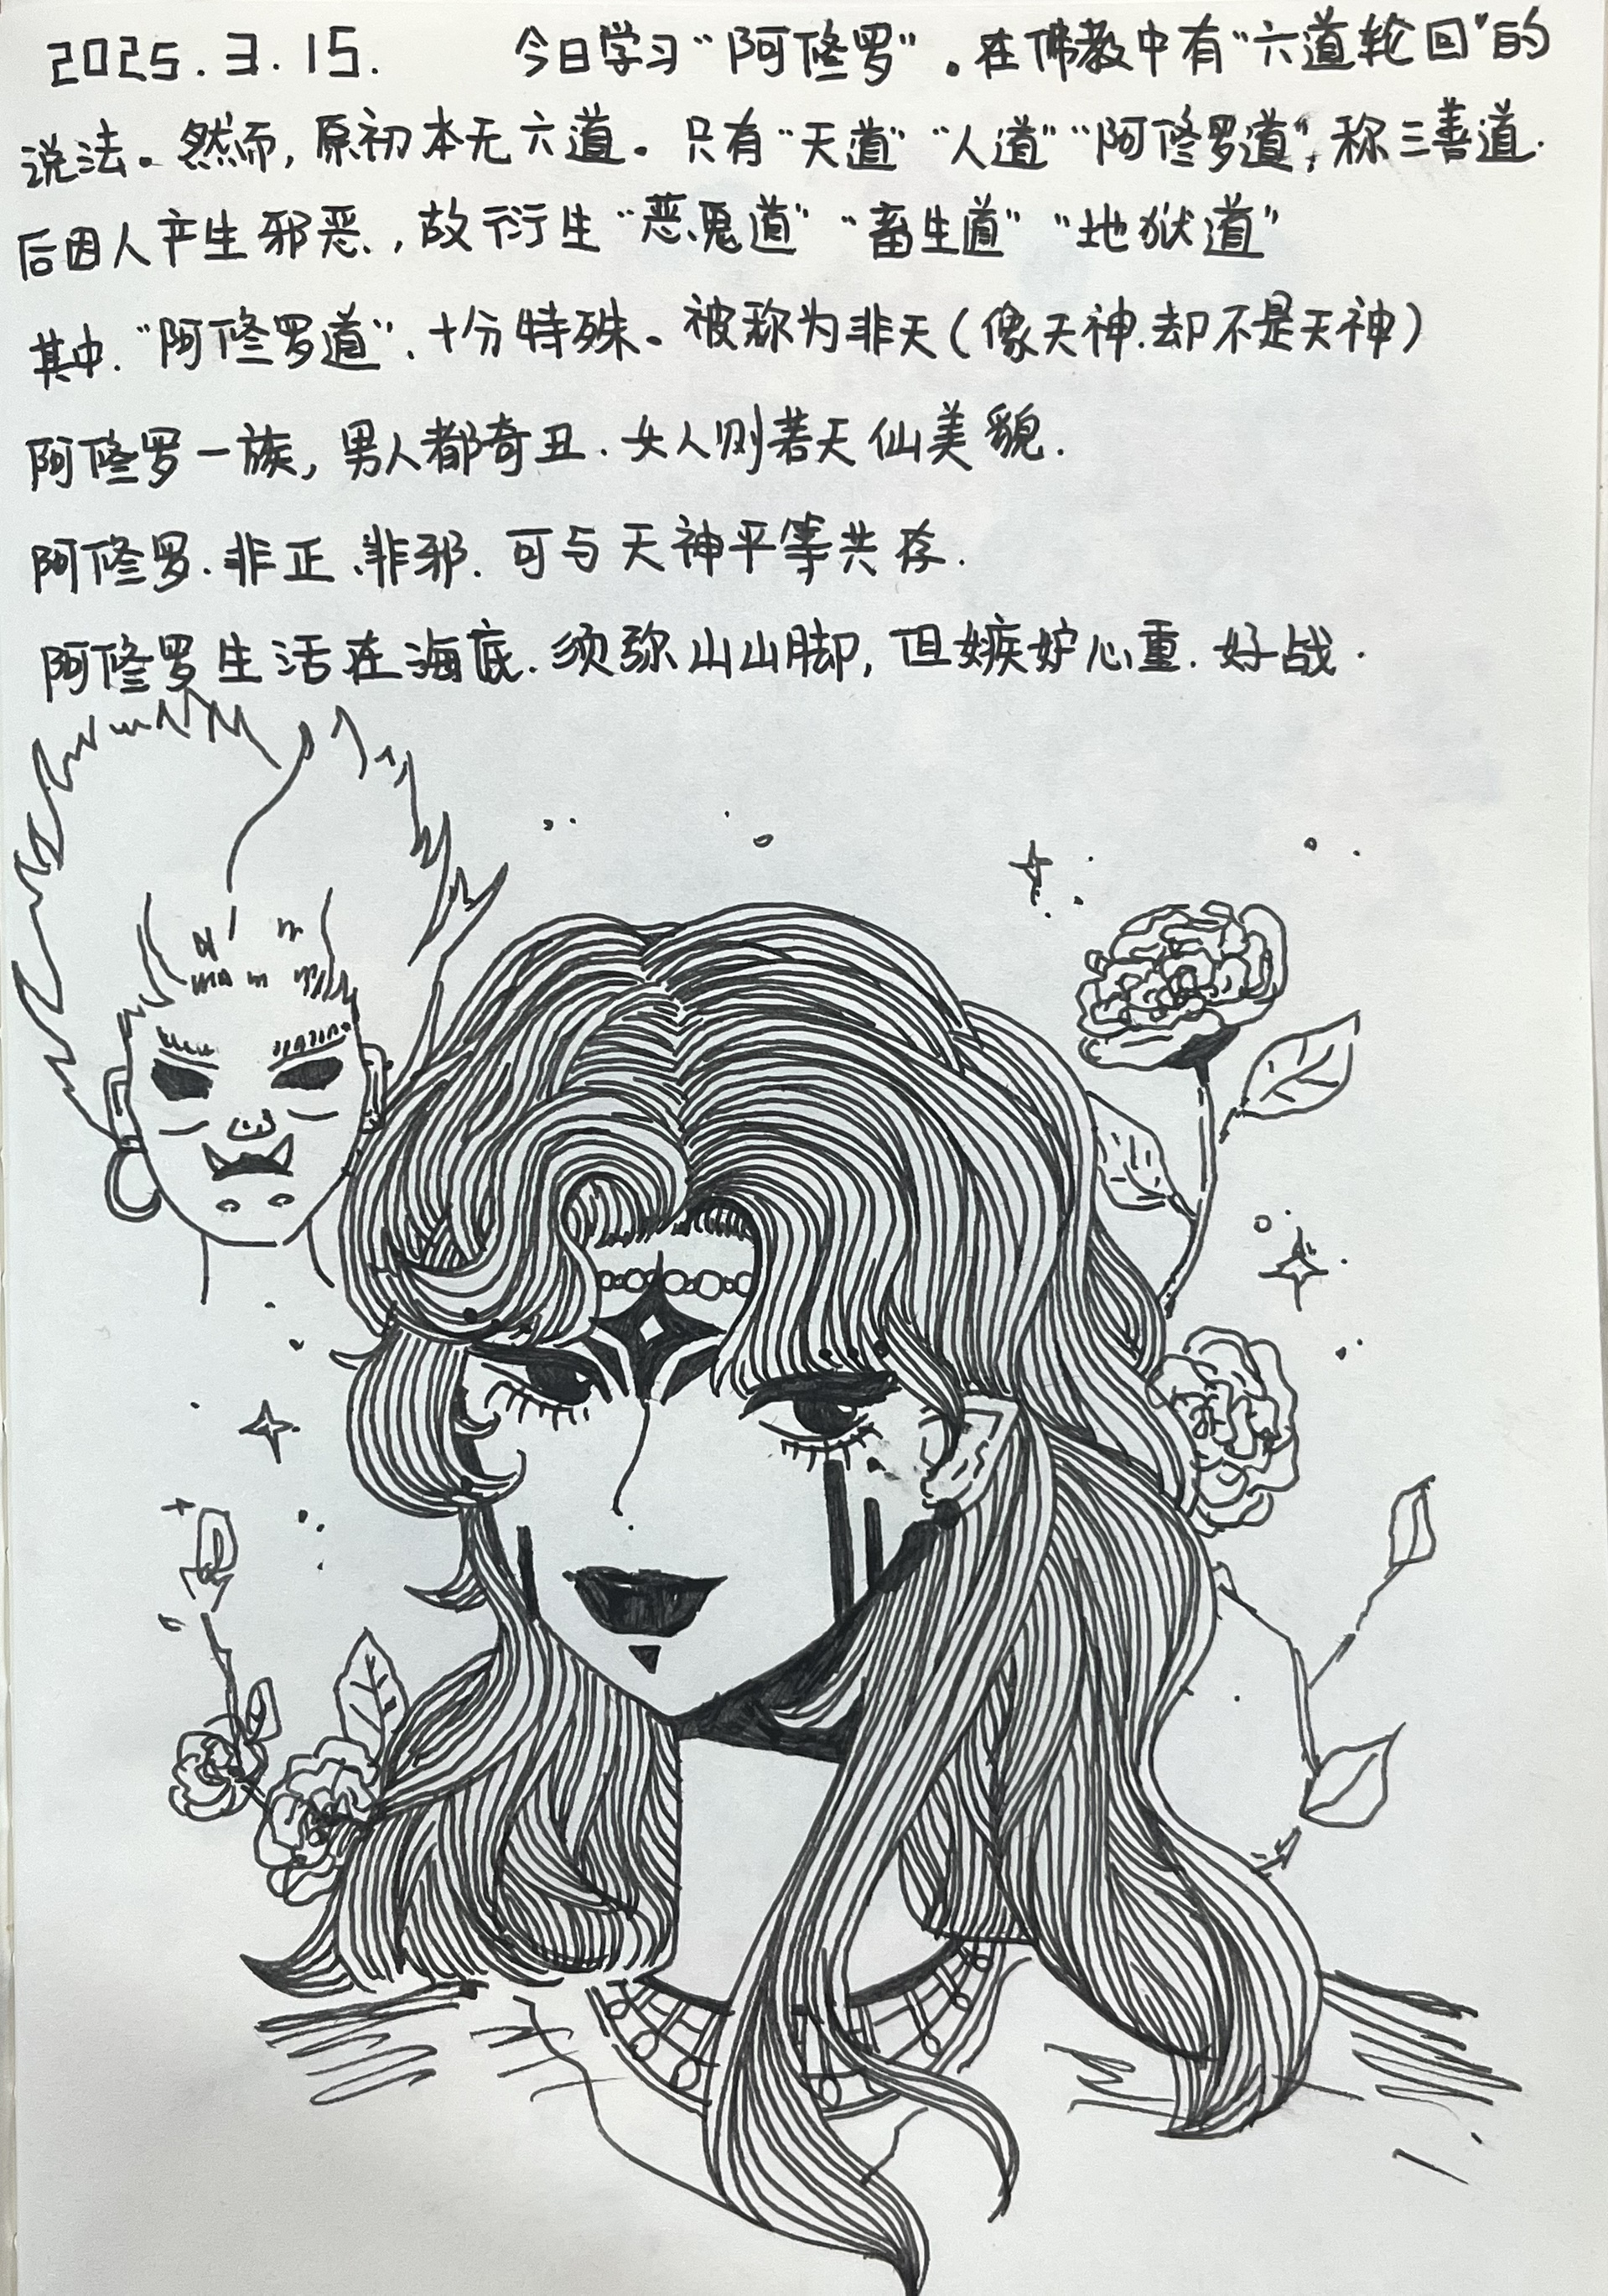 2025.3.15. 今日学习“阿修罗”。在佛教中有“六道轮回”的
说法。然而,原初本无六道。只有“天道”“人道”“阿修罗道”,称三善道.
后因人产生邪恶.,故衍生“恶鬼道”“畜生道”“地狱道”
其中.“阿修罗道”.十分特殊。被称为非天(像天神.却不是天神)
阿修罗一族,男人都奇丑.女人则若天仙美貌.
阿修罗.非正、非邪.可与天神平等共存.
阿修罗生活在海底.须弥山山脚,但嫉妒心重.好战.